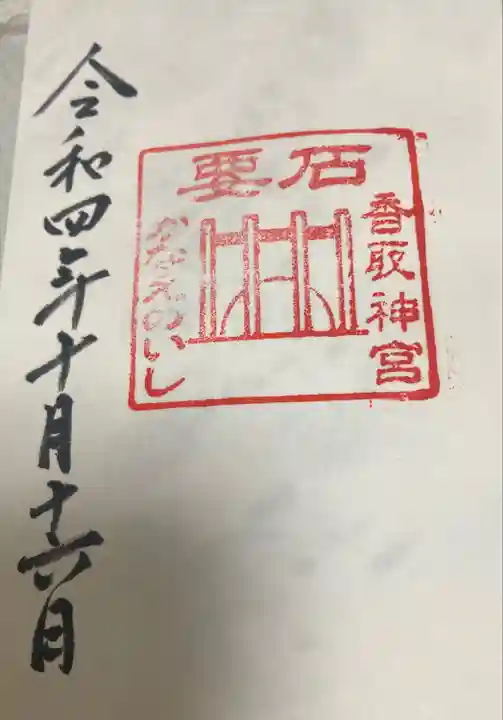 香取神宮
要石
かなめのいし
令和四年十月十六日